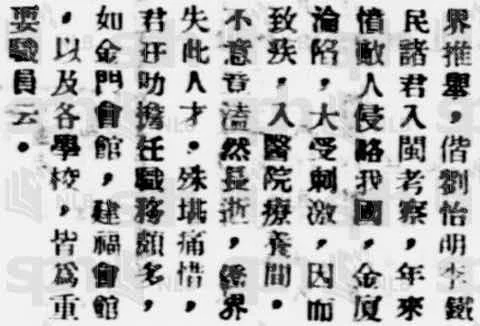 界推舉，偕劉怡明李鐵
民諸君入閩考察，年來
憤敵人侵略我國，金廈
淪陷，大受刺激，因而
致疾，入醫院療養間，
不意竟溘然長逝，僑界
失此人才，殊堪痛惜，
君在叻擔任職務頗多，
如金門會館，建福會館
，以及各學校，皆為重
要職員云。